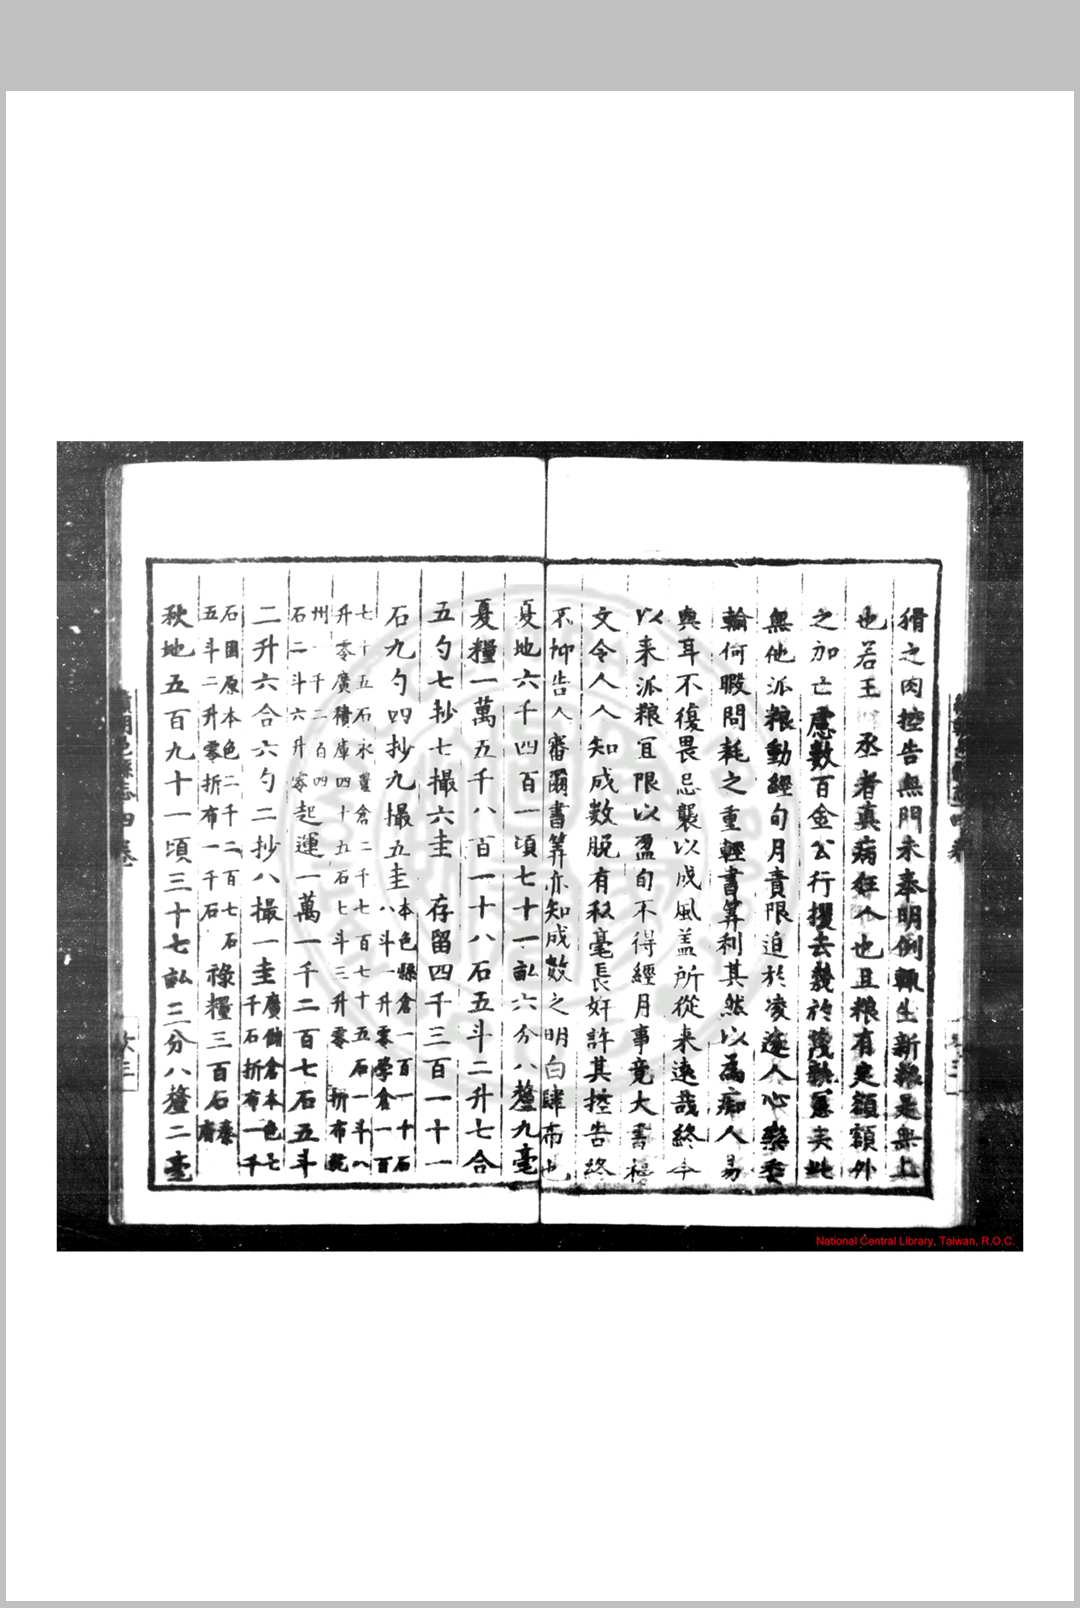 猾之肉控告無門未奉明例輙生新粮是無上
也若王 丞者真病狂人也且粮有定額額外
之加亡慮數百金公行攫去幾於茂 夫此
無他派粮動經旬月責限迫於凌遲人心樂
輸何暇問耗之重輕書筭利其然以為痴人易
與耳不復畏忌襲以成風盖所從来遠哉終今
以来派粮宜限以盈旬不得經月事竟大書
文令人人知成數脫有私毫長奸許其控告終
不抑告人審爾書筭亦知成數之明白肆布也
夏地六千四百一頃七十一畝六分八釐九毫
夏糧一萬五千八百一十八石五斗二升七合
五勺七抄七撮六圭 存留四千三百一十一
石九勺四抄九撮五圭本色縣倉一百一十石
八斗一升零學倉一百
七十五石永豐倉二千七百七十五石一斗八
升零廣積庫四十五石七斗三升零 折布
州一千二百四
石二斗六升零起運一萬一千二百七石五斗
二升六合六勺二抄八撮一圭廣儲倉本色七
千石折布一千
石國原本色二千二百七石
五斗二升零折布一千石祿糧三百石
秋地五百九十一頃三十七畝三分八釐二毫
National Central Library, Taiwan, R.O.C.